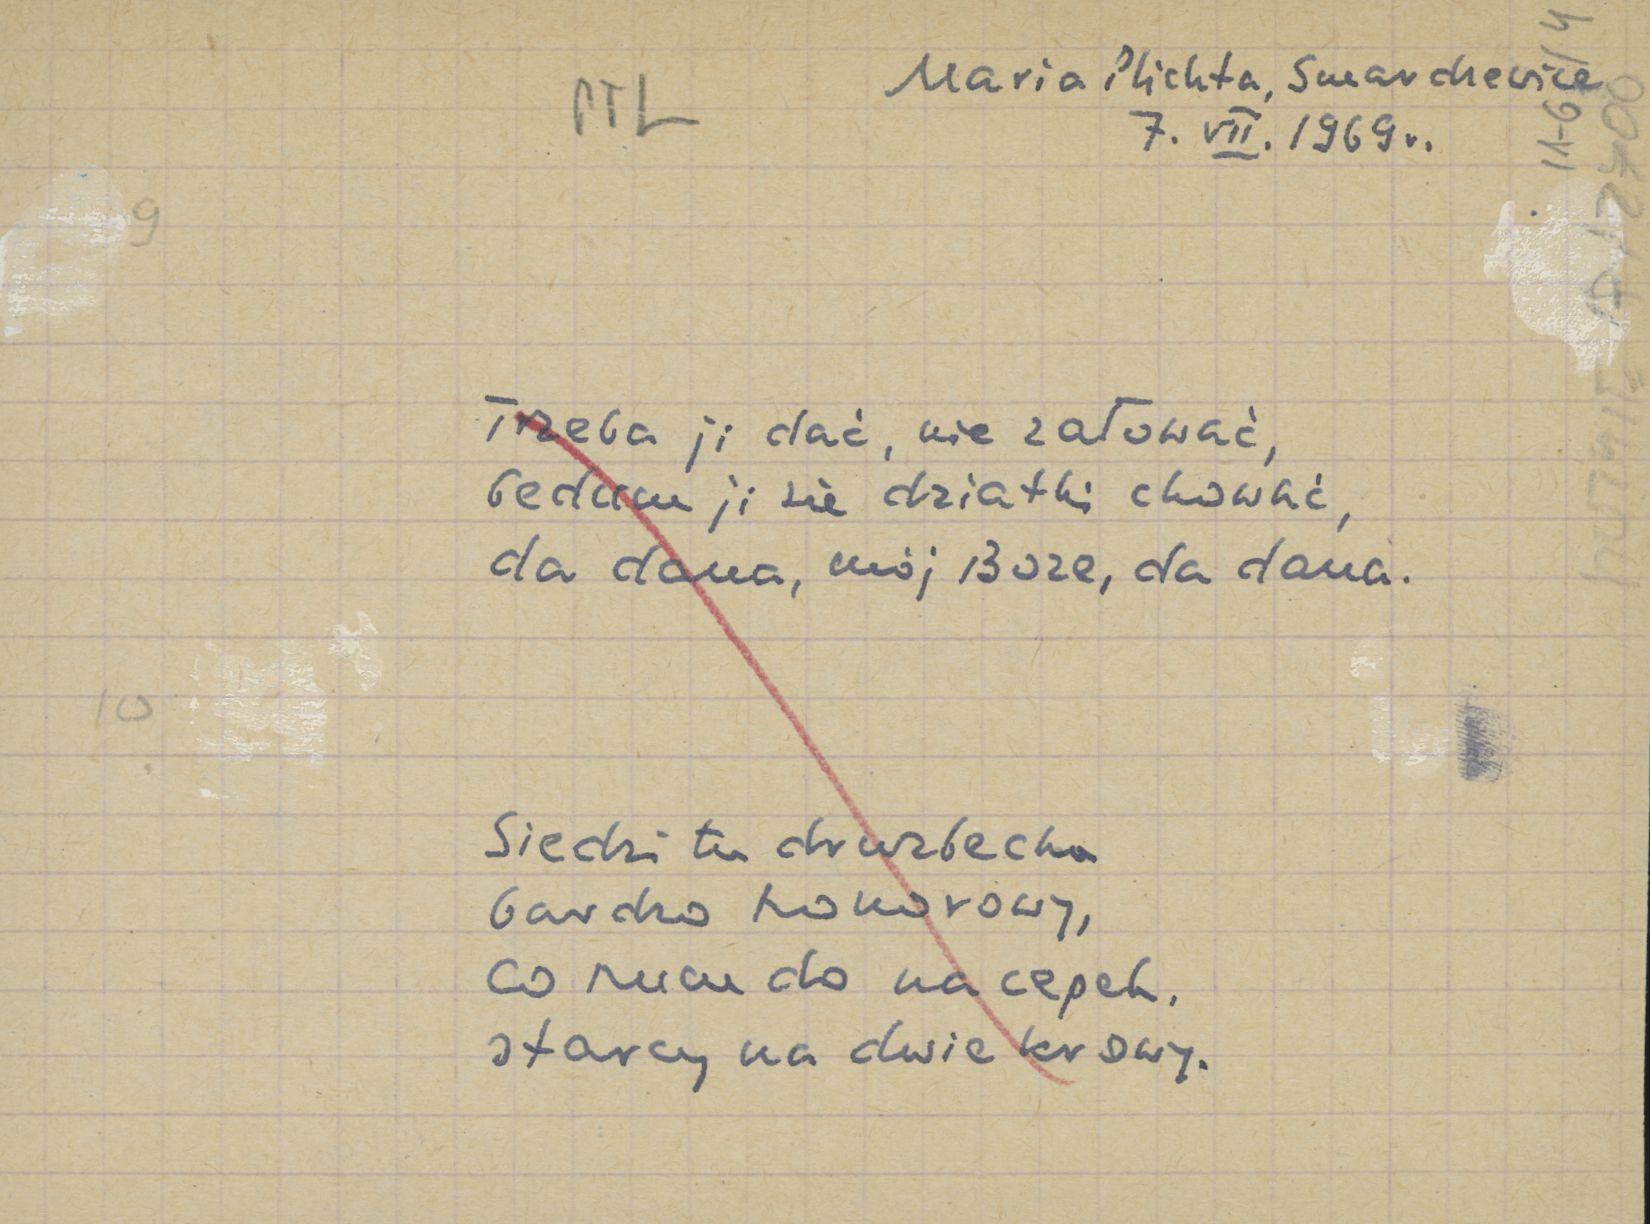 PTL
Maria Plichta, Smardzewice
7. VII. 1969 r.
11-6/14
9
Trzeba ji dać, nie załować,
bedum ji sie dziatki chować,
da dana, mój Boze, da dana.
10
Siedzi tu druzbecka
bardzo honorowy,
co mu do na cepek.
starcy na dwie krowy.